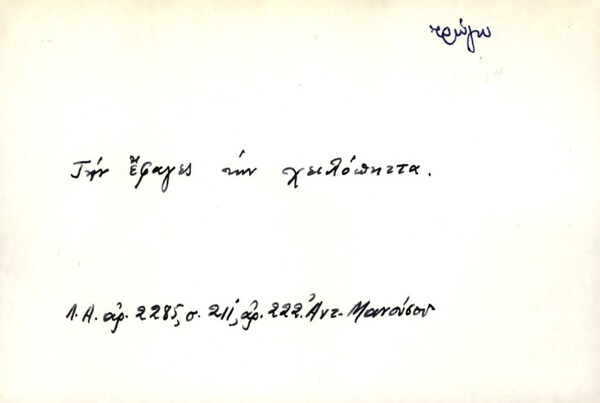 τρώγω
Τὴν ἔφαγες τὴν χειλόπηττα.
Λ.Α. ἀρ. 2285, σ. 211, ἀρ. 222. Ἀντ. Μανούσου